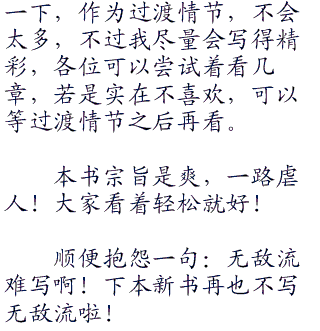 一下，作为过渡情节，不会
太多，不过我尽量会写得精
彩，各位可以尝试着看几
章，若是实在不喜欢，可以
等过渡情节之后再看。
本书宗旨是爽，一路虐
人！大家看着轻松就好！
顺便抱怨一句：无敌流
难写啊！下本新书再也不写
无敌流啦！